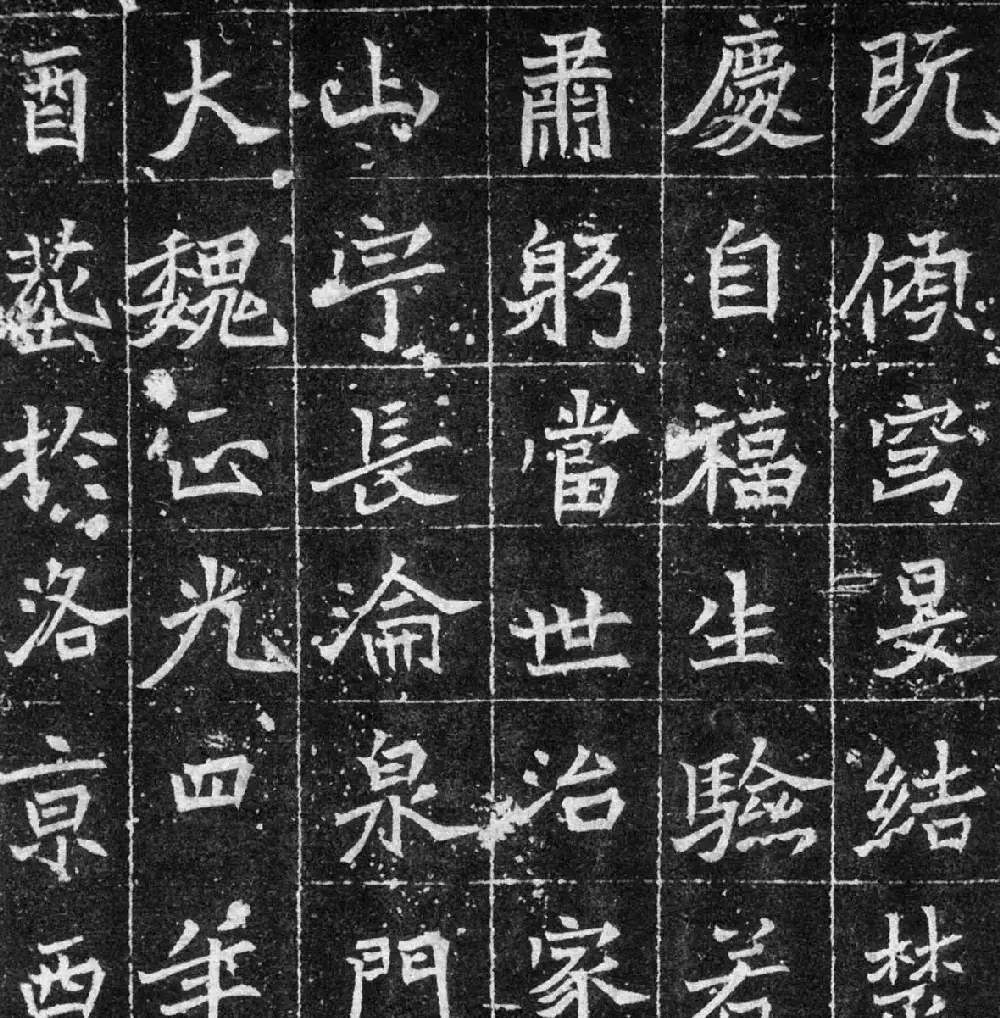 既傾穹旻結楚
慶自福生驗若
肅躬當世治家
山宇長淪泉門
大魏正光四年
酉葬於洛京西